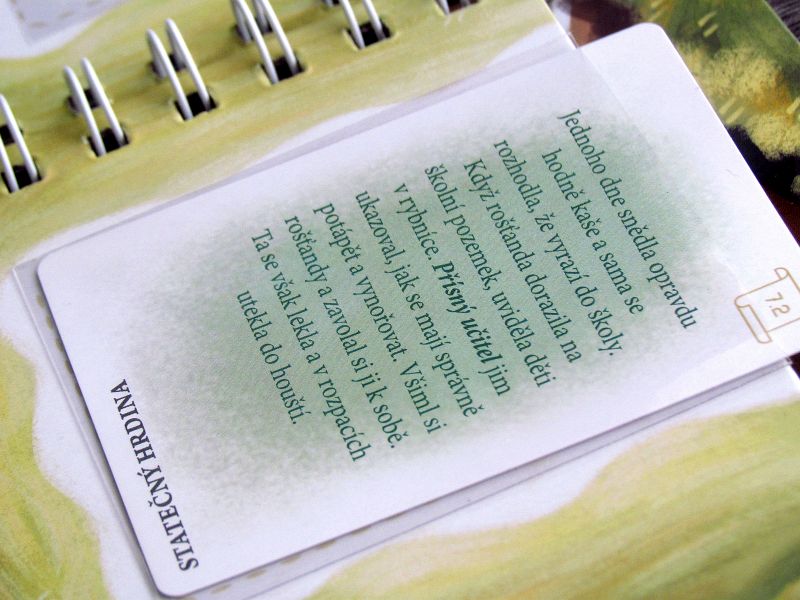 Jednoho dne snědla opravdu
hodně kaše a sama se
rozhodla, že vyrazí do školy.
Když rošťanda dorazila na
školní pozemek, uviděla děti
v rybníce. Přísný učitel jim
ukazoval, jak se mají správně
potápět a vynořovat. Všiml si
rošťandy a zavolal si ji k sobě.
Ta se však lekla a v rozpacích
utekla do houští.
STATEČNÝ HRDINA
7.2